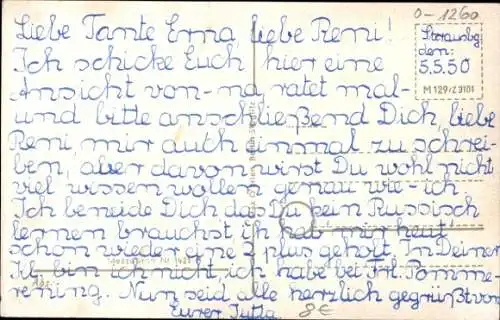 0-1260
Liebe Tante Erna liebe Reni!
Strausbg
den:
5.5.50
M 129/Z 3101
Ich schicke Euch hier eine
Ansicht von - na ratet mal -
und bitte anschließend Dich, liebe
Reni mir auch einmal zu schrei-
ben, aber davon wirst Du wohl nicht
viel wissen wollen genau wie ich
Ich beneide Dich das Du kein Russisch
lernen brauchst ich hab mir heut
schon wieder ne 3 plus geholt. In Deiner
Kl. bin ich nicht, ich habe bei Frl. Pomme-
rening. Nun seid alle herzlich gegrüßt von
Eurer Jutta.
8€
Abs.